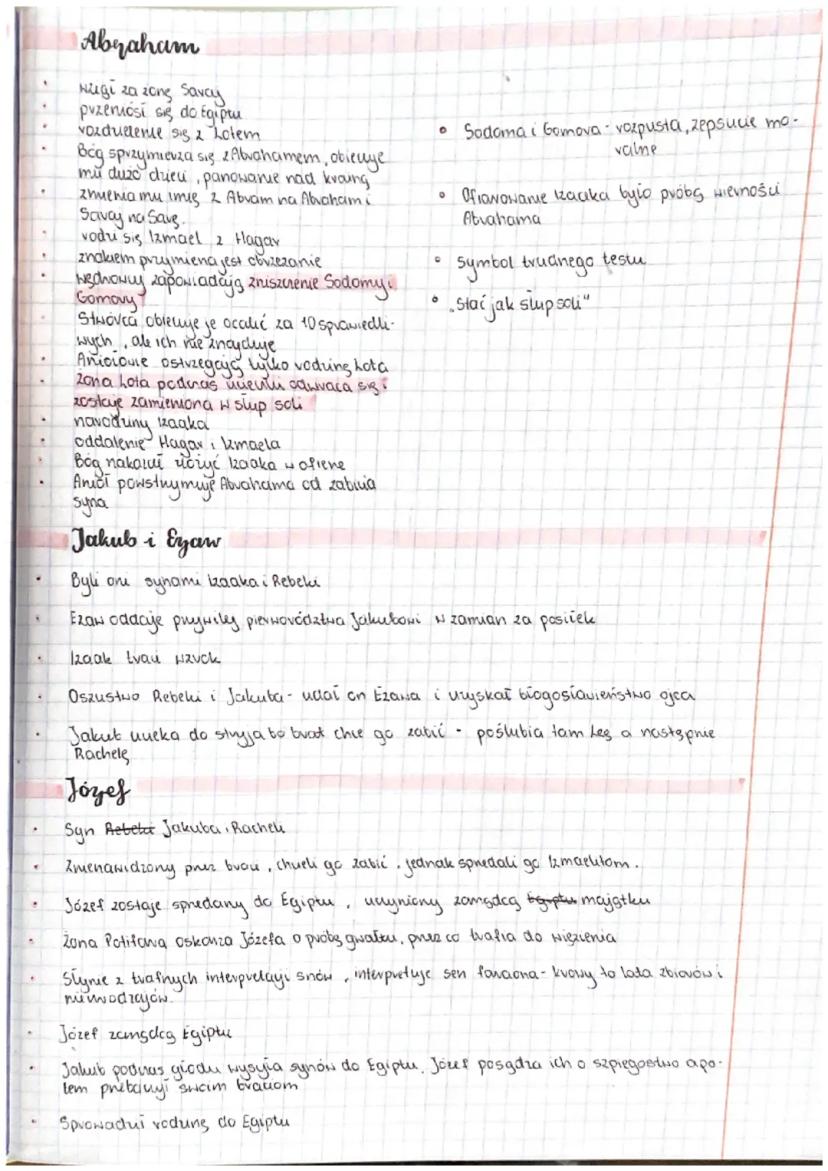 Abraham
wziął za żonę Saraj
przeniósł się do Egiptu
rozdzielenie się z Lotem
Bóg sprzymierza się z Abrahamem, obiecuje
mu dużo dzieci, panowanie nad krainą
zmienia mu imię z Abram na Abraham i
Saraj na Sarę.
rodzi się Izmael z Hagar
znakiem przymierza jest obrzezanie
wędrowcy zapowiadają zniszczenie Sodomy i
Gomory
Stwórca obiecuje je ocalić za 10 sprawiedli-
wych, ale ich nie znajduje
Aniołowie ostrzegają tylko rodzinę Lota
żona Lota podczas ucieczki odwraca się i
zostaje zamieniona w słup soli
narodziny Izaaka
oddalenie Hagar i Izmaela
Bóg nakazał złożyć Izaaka w ofierze
Anioł powstrzymuje Abrahama od zabicia
syna
Sodoma i Gomora - rozpusta, zepsucie mo-
ralne
Ofiarowanie Izaaka było próbą wierności
Abrahama
symbol trudnego testu
"Stać jak słup soli"
Jakub i Ezaw
Byli oni synami Izaaka i Rebeki
Ezaw oddaje przywilej pierworództwa Jakubowi w zamian za posiłek
Izaak traci wzrok
Oszustwo Rebeki i Jakuba - udał on Ezawa i uzyskał błogosławieństwo ojca
Jakub ucieka do stryja bo brat chce go zabić - poślubia tam Leę a następnie
Rachelę
Józef
Syn Rebeki Jakuba i Racheli
Znienawidzony przez braci, chcieli go zabić, jednak sprzedali go Izmaelitom.
Józef zostaje sprzedany do Egiptu, uczyniony zarządcą Egiptu majątku
żona Potifara oskarża Józefa o próbę gwałtu, przez co trafia do więzienia
Słynie z trafnych interpretacji snów, interpretuje sen faraona - krowy to lata zbiorów i
nieurodzajów.
Józef zarządcą Egiptu
Jakub podczas głodu wysyła synów do Egiptu. Józef posądza ich o szpiegostwo a po-
tem przebaczył swoim braciom
Sprowadził rodzinę do Egiptu